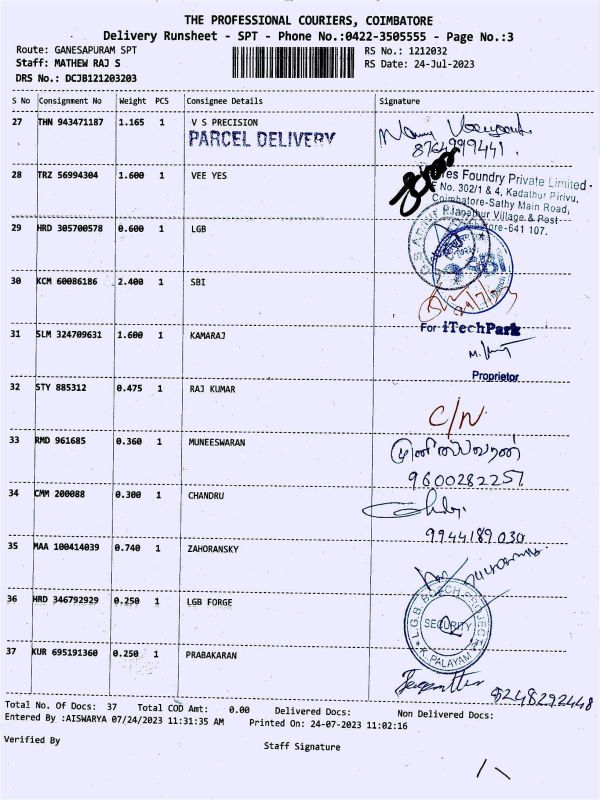 THE PROFESSIONAL COURIERS, COIMBATORE
Delivery Runsheet - SPT - Phone No.:0422-3505555 - Page No.:3
Route: GANESAPURAM SPT RS No.: 1212032
Staff: MATHEW RAJ S RS Date: 24-Jul-2023
DRS No.: DCJB121203203
S No Consignment No Weight PCS Consignee Details Signature
27 THN 943471187 1.165 1 V S PRECISION
PARCEL DELIVERY
28 TRZ 56994304 1.600 1 VEE YES
Foundry Private Limited
F No. 302/1 & 4, Kadathur Pirivu,
Coimbatore-Sathy Main Road,
Village & Post
641 107.
29 HRD 305700578 0.600 1 LGB
30 KCM 60086186 2.400 1 SBI
For iTechPark
31 SLM 324709631 1.600 1 KAMARAJ
Proprietor
32 STY 885312 0.475 1 RAJ KUMAR
C/N
33 RMD 961685 0.360 1 MUNEESWARAN
முனிஸ்வரன்
9600282257
34 CMM 200088 0.300 1 CHANDRU
9944189030
35 MAA 100414039 0.740 1 ZAHORANSKY
36 HRD 346792929 0.250 1 LGB FORGE
SECURITY
K. PALAYAM
37 KUR 695191360 0.250 1 PRABAKARAN
8248292448
Total No. Of Docs: 37 Total COD Amt: 0.00 Delivered Docs: Non Delivered Docs:
Entered By :AISWARYA 07/24/2023 11:31:35 AM Printed On: 24-07-2023 11:02:16
Verified By Staff Signature